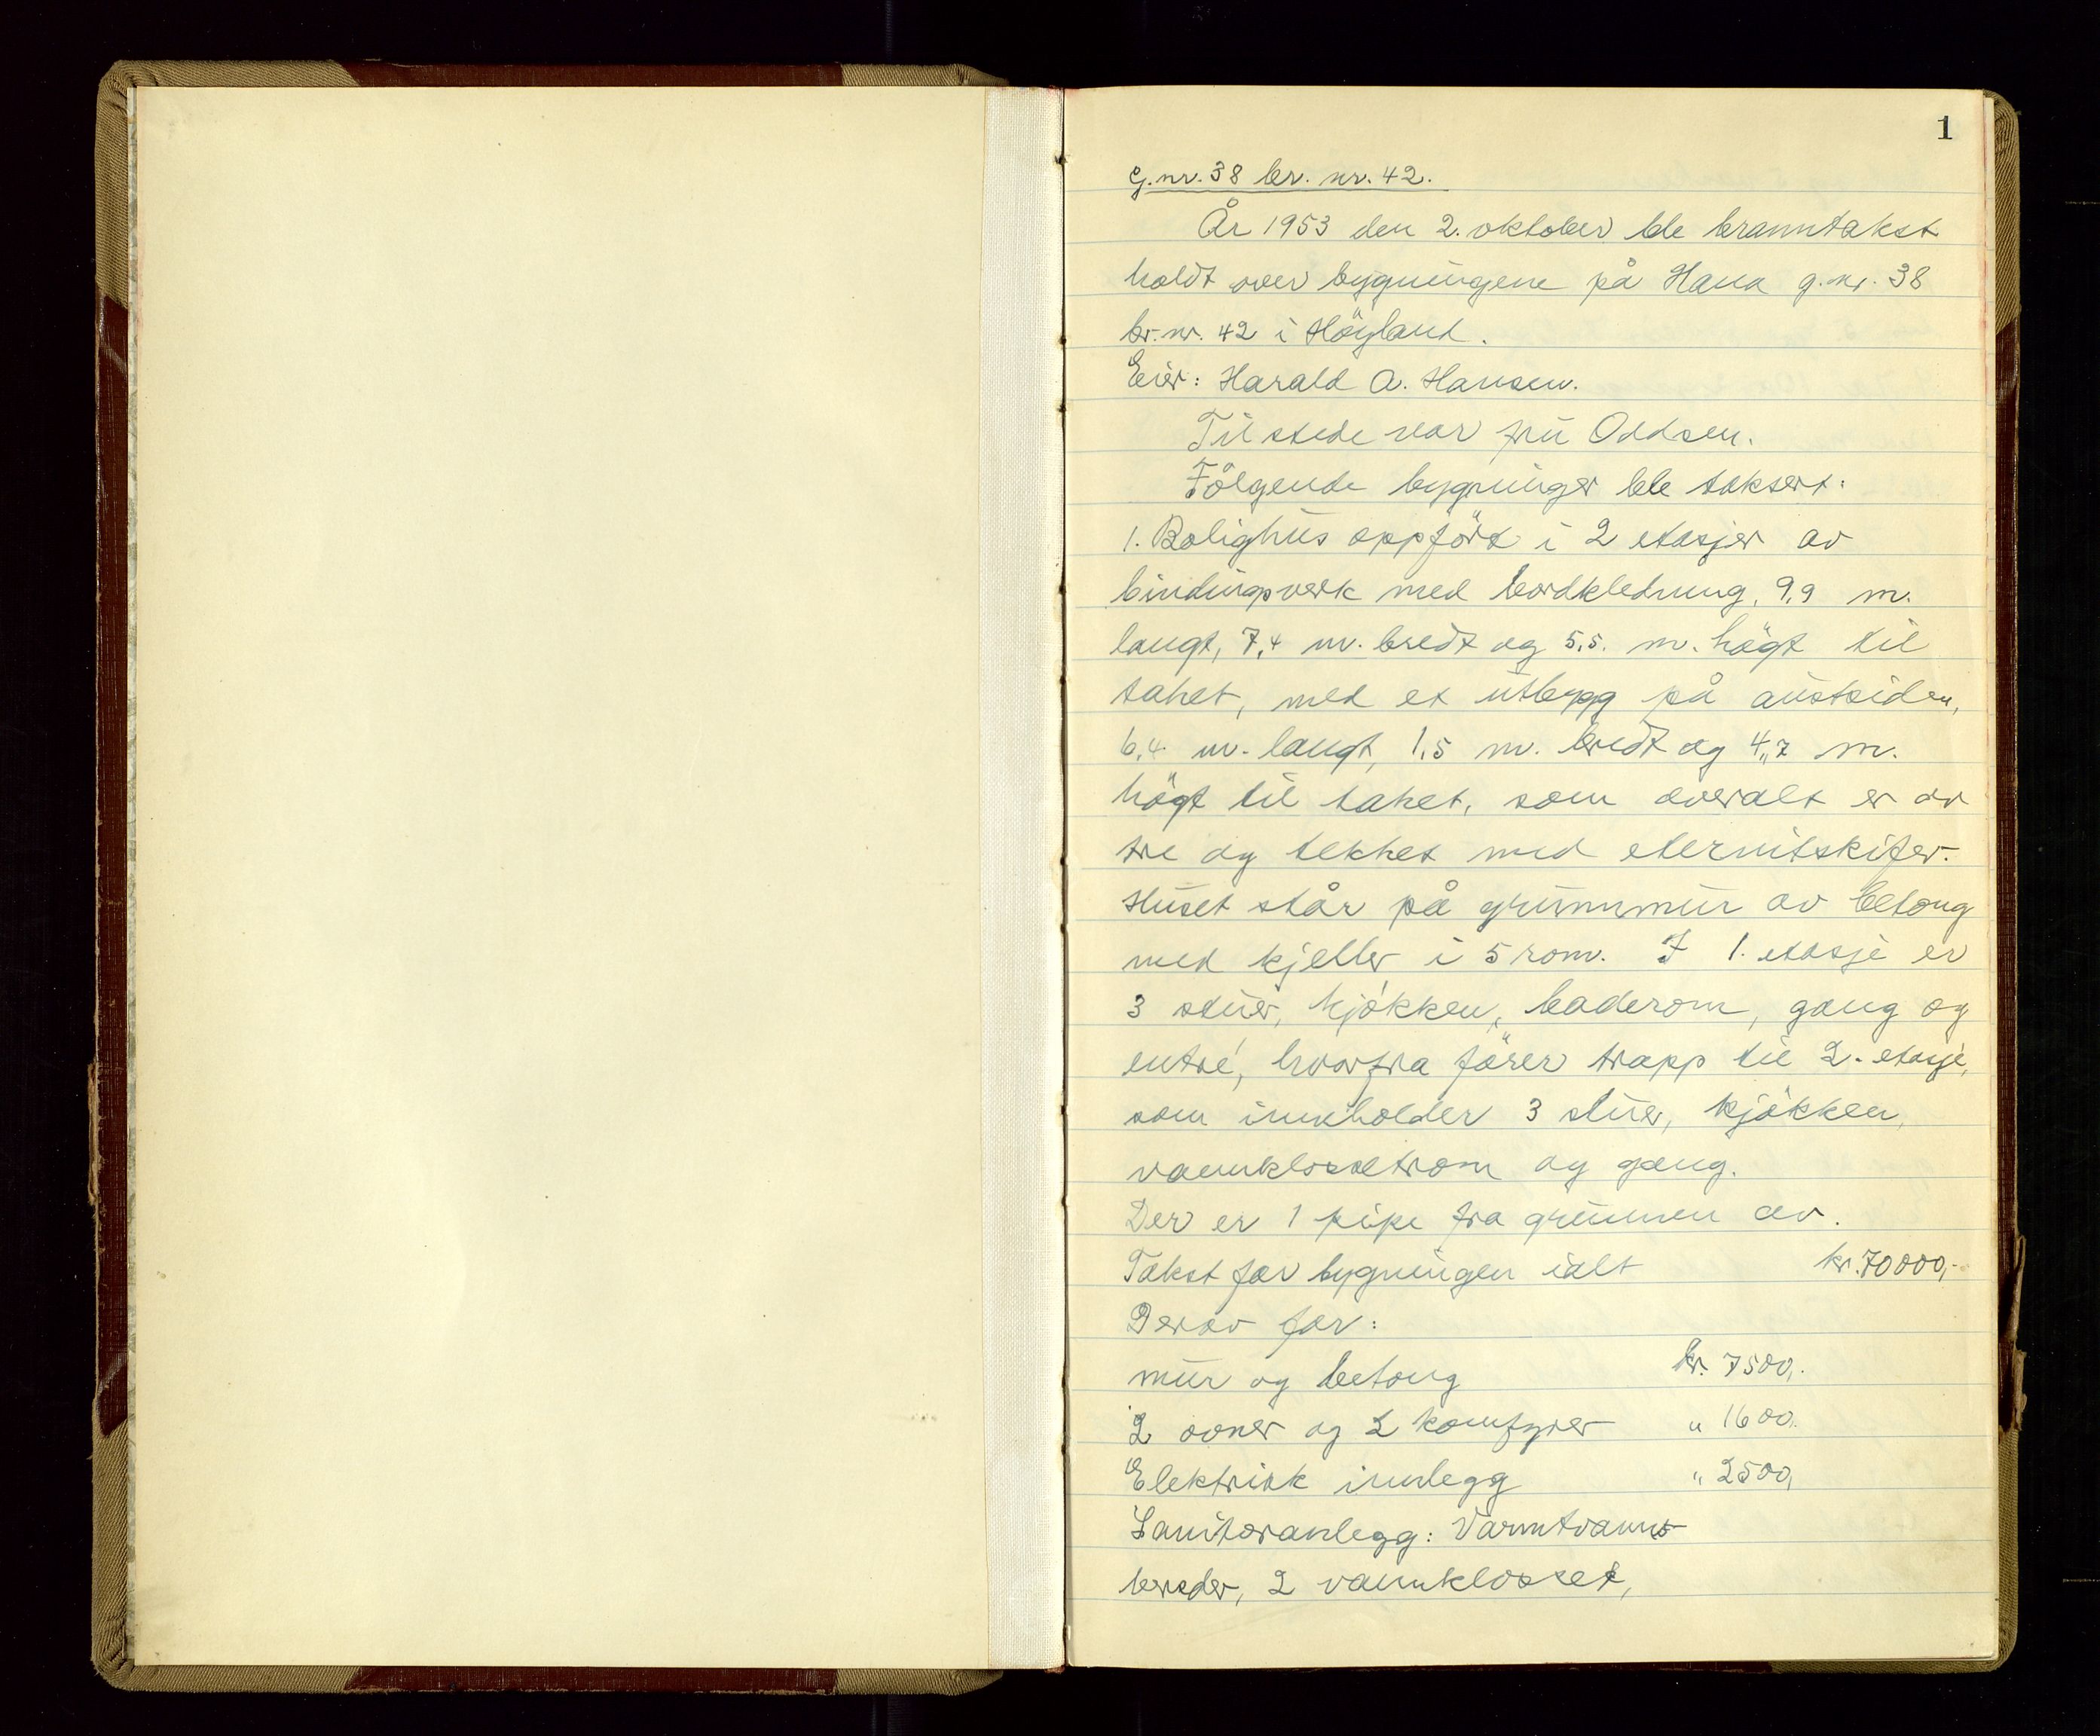 1
G.nr. 38 br. nr. 42.
År 1953 den 2. oktober ble branntakst
holdt over bygningene på Hana g.nr. 38
br.nr. 42 i Höyland.
Eier: Harald A. Hansen.
Til stede var fru Oddsen.
Fölgende bygninger ble taksert:
1. Bolighus oppfört i 2 etasjer av
bindingsverk med bordkledning, 9,9 m.
langt, 7,4 m. bredt og 5,5. m. högt til
taket, med et utbygg på austsiden,
6,4 m. langt, 1,5 m. bredt og 4,7 m.
högt til taket, som overalt er av
tre og tekket med eternitskifer.
Huset står på grunnmur av betong
med kjeller i 5 rom. I 1. etasje er
3 stuer, kjökken, baderom, gang og
entré, hvorfra förer trapp til 2. etasje,
som inneholder 3 stuer, kjökken,
vannklosetrom og gang.
Der er 1 pipe fra grunnen av.
Takst for bygningen ialt kr. 70000,-
Derav for:
mur og betong kr. 7500,.
2 ovner og 2 komfyrer " 1600.
Elektrisk innlegg " 2500,
Sanitæranlegg: Varmtvanns-
bereder, 2 vannklosset,